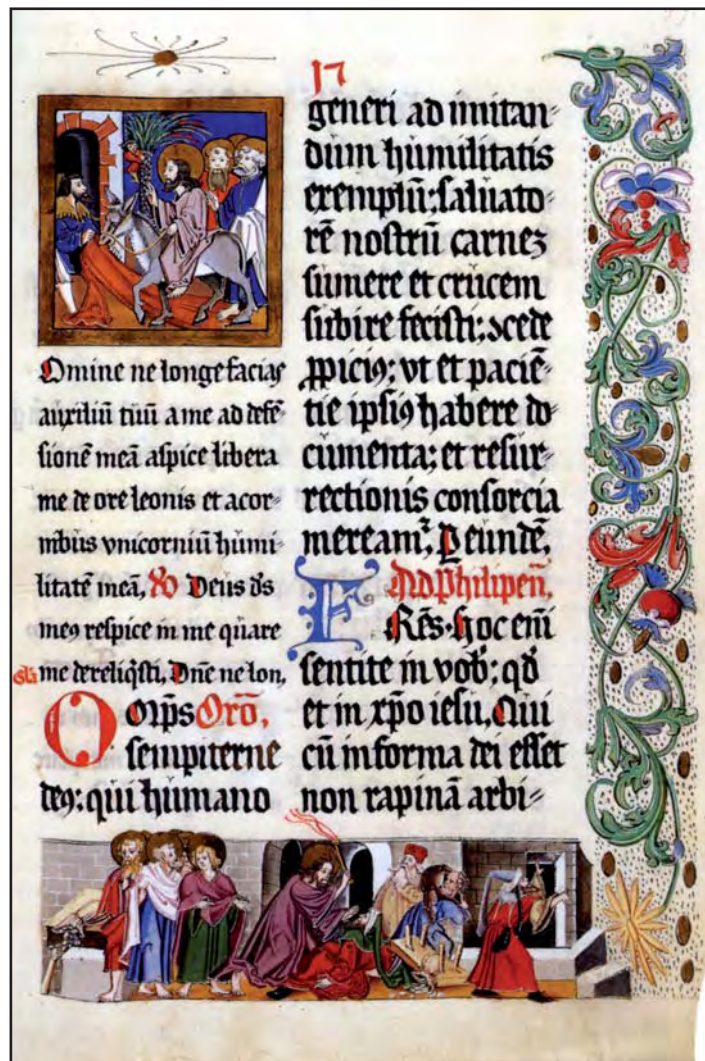 Omine ne longe facias
auxiliū tuū a me ad defē-
sionē meā aspice libera
me de ore leonis et a cor-
nibus vnicorniū humi-
litatē meā, Deus ds
meꝰ respice in me quare
me dereliqsti, Dñe ne lon,
Oīps Orō,
sempiterne
deꝰ: qui humano
generi ad imitan-
dum humilitatis
exemplū: saluato-
rē nostrū carnez
sumere et crucem
subire fecisti: ɔcede
ꝓpiciꝰ: vt et paciē-
tie ipsiꝰ habere do-
cumenta: et resur-
rectionis consorcia
mereamꝰ, P eundē,
Ad Philipeñ,
FRēs. hoc eni
sentite in vob: qd
et in xpo iesu, Qui
cū in forma dei esset
non rapinā arbi-